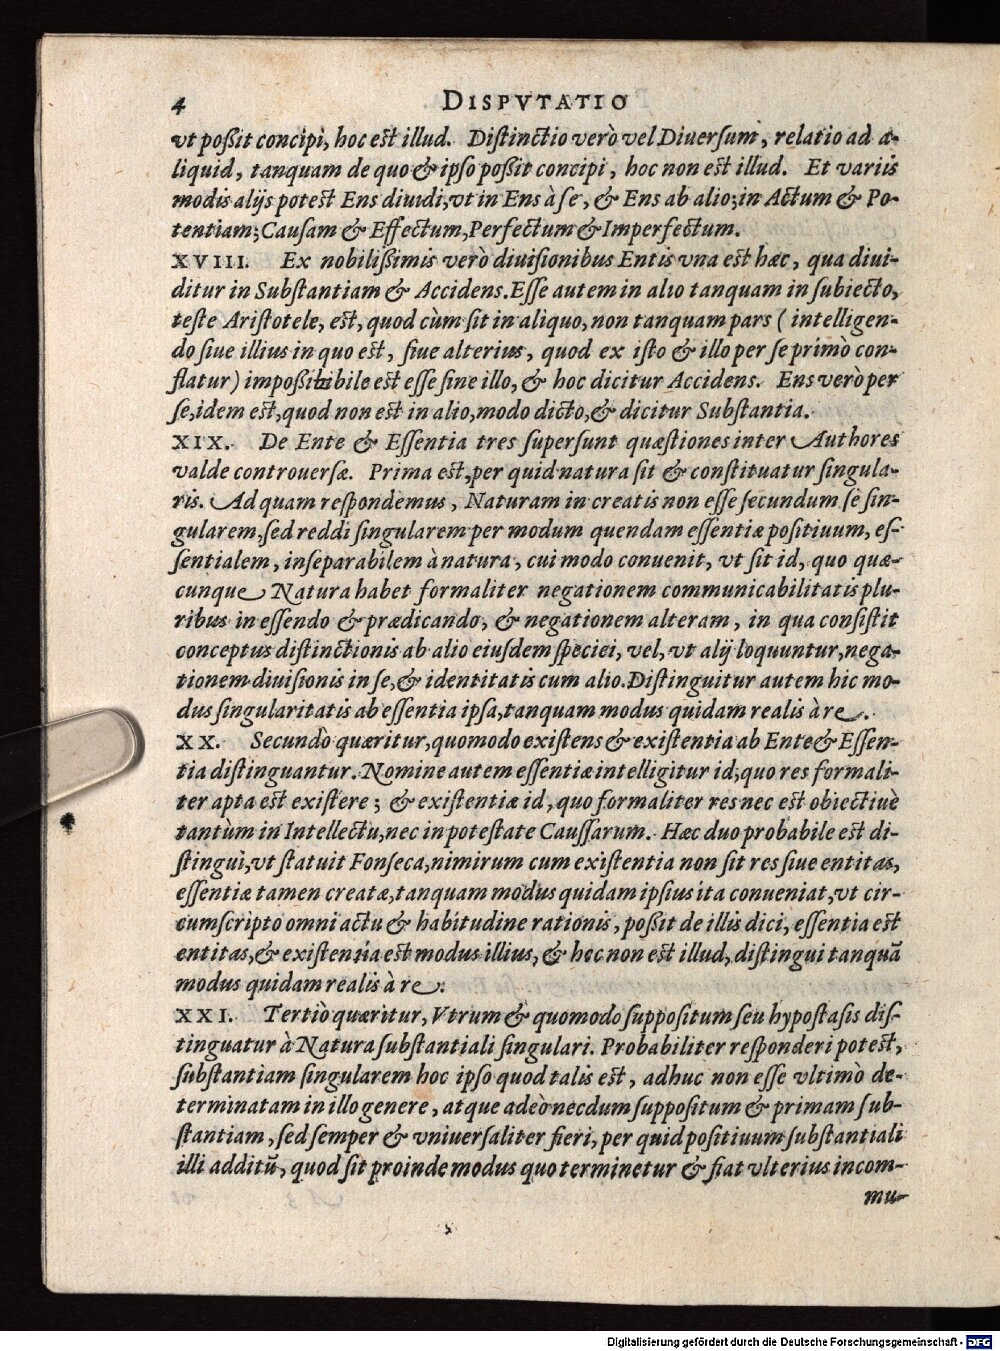 4 DISPVTATIO
vt poßit concipi, hoc est illud. Distinctio verò vel Diuersum, relatio ad a-
liquid, tanquam de quo & ipso poßit concipi, hoc non est illud. Et variis
modis alijs potest Ens diuidi, vt in Ens à se, & Ens ab alio; in Actum & Po-
tentiam; Causam & Effectum, Perfectum & Imperfectum.
XVIII. Ex nobilißimis verò diuisionibus Entis vna est hæc, qua diui-
ditur in Substantiam & Accidens. Esse autem in alio tanquam in subiecto,
teste Aristotele, est, quod cùm sit in aliquo, non tanquam pars ( intelligen-
do siue illius in quo est, siue alterius, quod ex isto & illo per se primò con-
flatur) impoßibile est esse sine illo, & hoc dicitur Accidens. Ens verò per
se, idem est, quod non est in alio, modo dicto, & dicitur Substantia.
XIX. De Ente & Essentia tres supersunt quæstiones inter Authores
valde controuersæ. Prima est, per quid natura sit & constituatur singula-
ris. Ad quam respondemus, Naturam in creatis non esse secundum se sin-
gularem, sed reddi singularem per modum quendam essentiæ positiuum, es-
sentialem, inseparabilem à natura, cui modo conuenit, vt sit id, quo quæ-
cunque Natura habet formaliter negationem communicabilitatis plu-
ribus in essendo & prædicando, & negationem alteram, in qua consistit
conceptus distinctionis ab alio eiusdem speciei, vel, vt alij loquuntur, nega-
tionem diuisionis in se, & identitatis cum alio. Distinguitur autem hic mo-
dus singularitatis ab essentia ipsa, tanquam modus quidam realis à re.
XX. Secundò quæritur, quomodo existens & existentia ab Ente & Essen-
tia distinguantur. Nomine autem essentiæ intelligitur id, quo res formali-
ter apta est existere; & existentiæ id, quo formaliter res nec est obiectiuè
tantùm in Intellectu, nec in potestate Caussarum. Hæc duo probabile est di-
stingui, vt statuit Fonseca, nimirum cum existentia non sit res siue entitas,
essentiæ tamen creatæ, tanquam modus quidam ipsius ita conueniat, vt cir-
cumscripto omni actu & habitudine rationis, poßit de illis dici, essentia est
entitas, & existentia est modus illius, & hoc non est illud, distingui tanquã
modus quidam realis à re.
XXI. Tertiò quæritur, Vtrum & quomodo suppositum seu hypostasis dis-
tinguatur à Natura substantiali singulari. Probabiliter responderi potest,
substantiam singularem hoc ipso quod talis est, adhuc non esse vltimò de-
terminatam in illo genere, atque adeò necdum suppositum & primam sub-
stantiam, sed semper & vniuersaliter fieri, per quid positiuum substantiali
illi additũ, quod sit proinde modus quo terminetur & fiat vlterius incom-
mu-
Digitalisierung gefördert durch die Deutsche Forschungsgemeinschaft - DFG